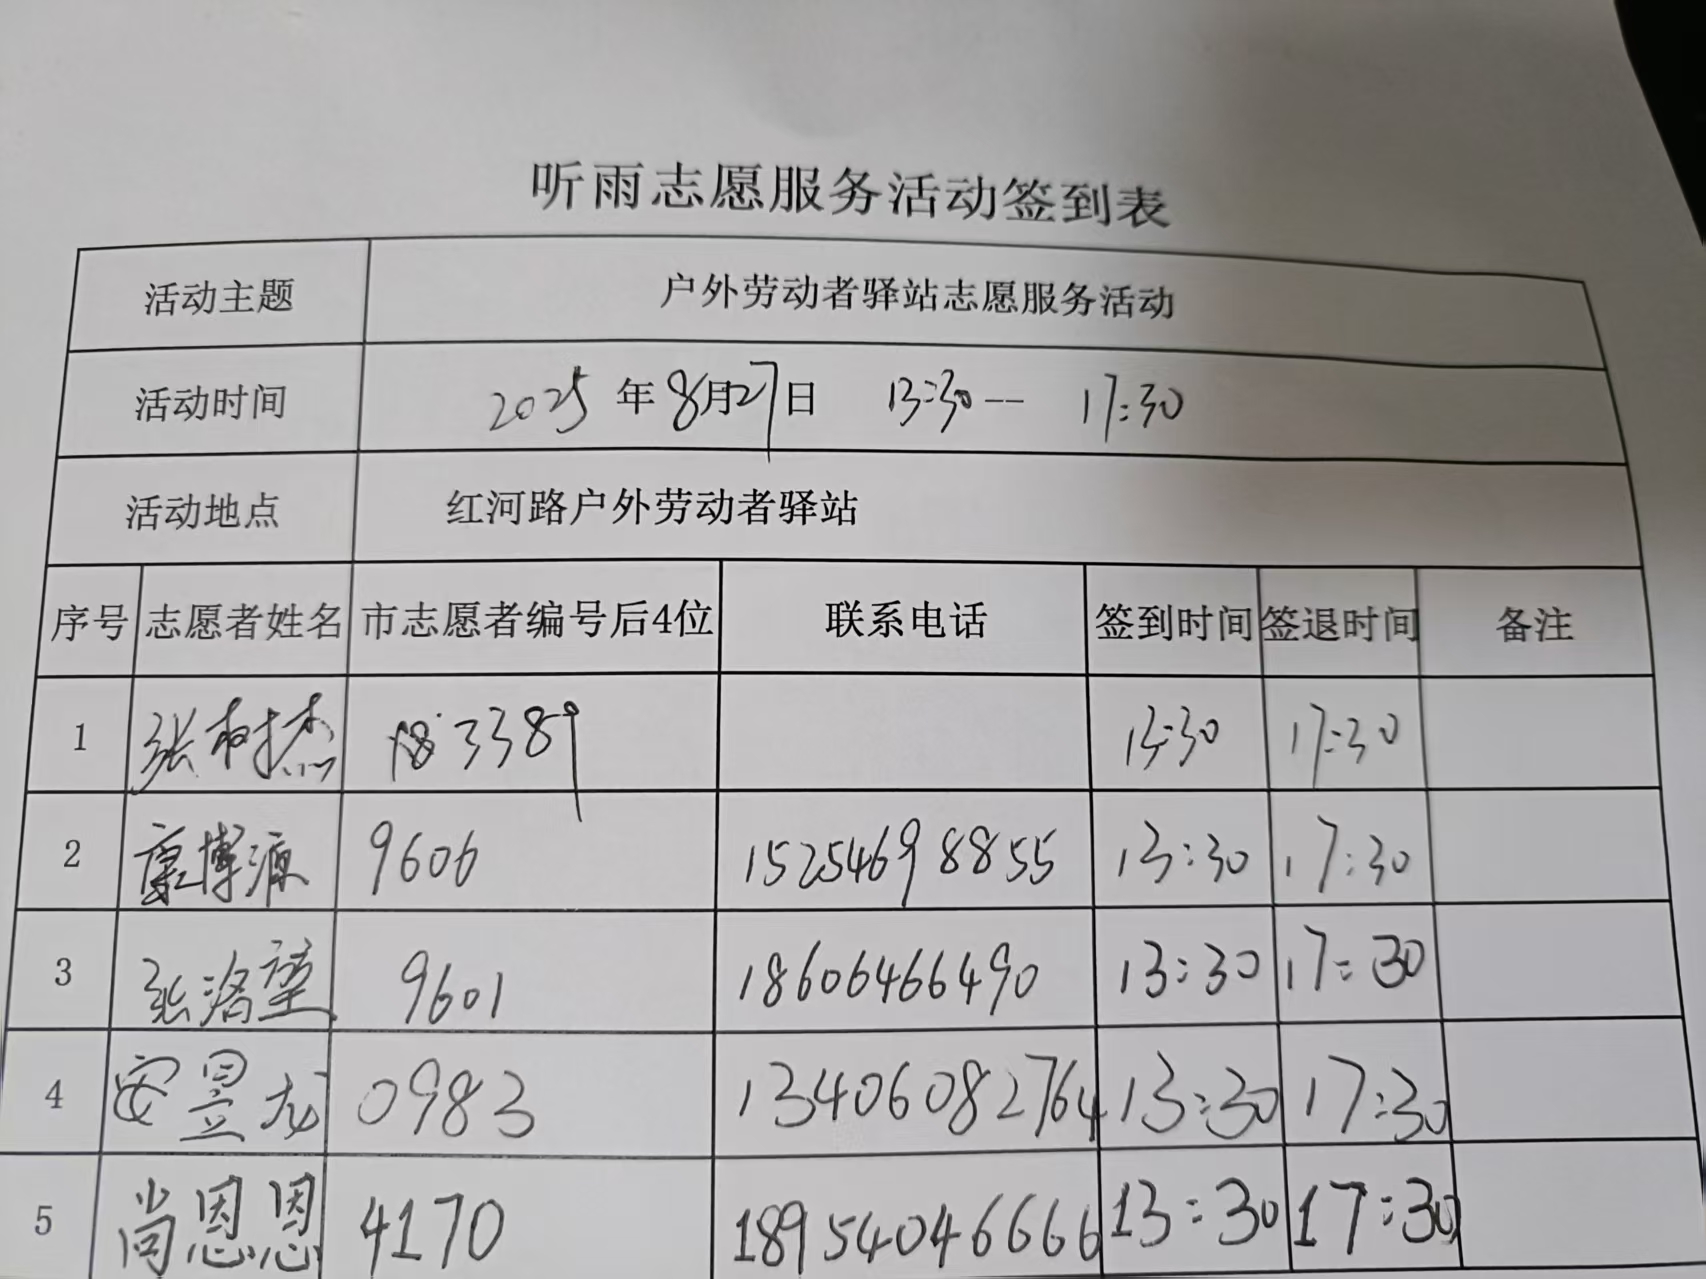 听雨志愿服务活动签到表
活动主题 户外劳动者驿站志愿服务活动
活动时间 2025年8月27日 13:30-- 17:30
活动地点 红河路户外劳动者驿站
序号 志愿者姓名 市志愿者编号后4位 联系电话 签到时间 签退时间 备注
1 张树杰 183389 13:30 17:30
2 康博源 9606 15254698855 13:30 17:30
3 张洛 9601 18606466490 13:30 17:30
4 安昱龙 0983 13406082764 13:30 17:30
5 尚恩恩 4170 18954046666 13:30 17:30